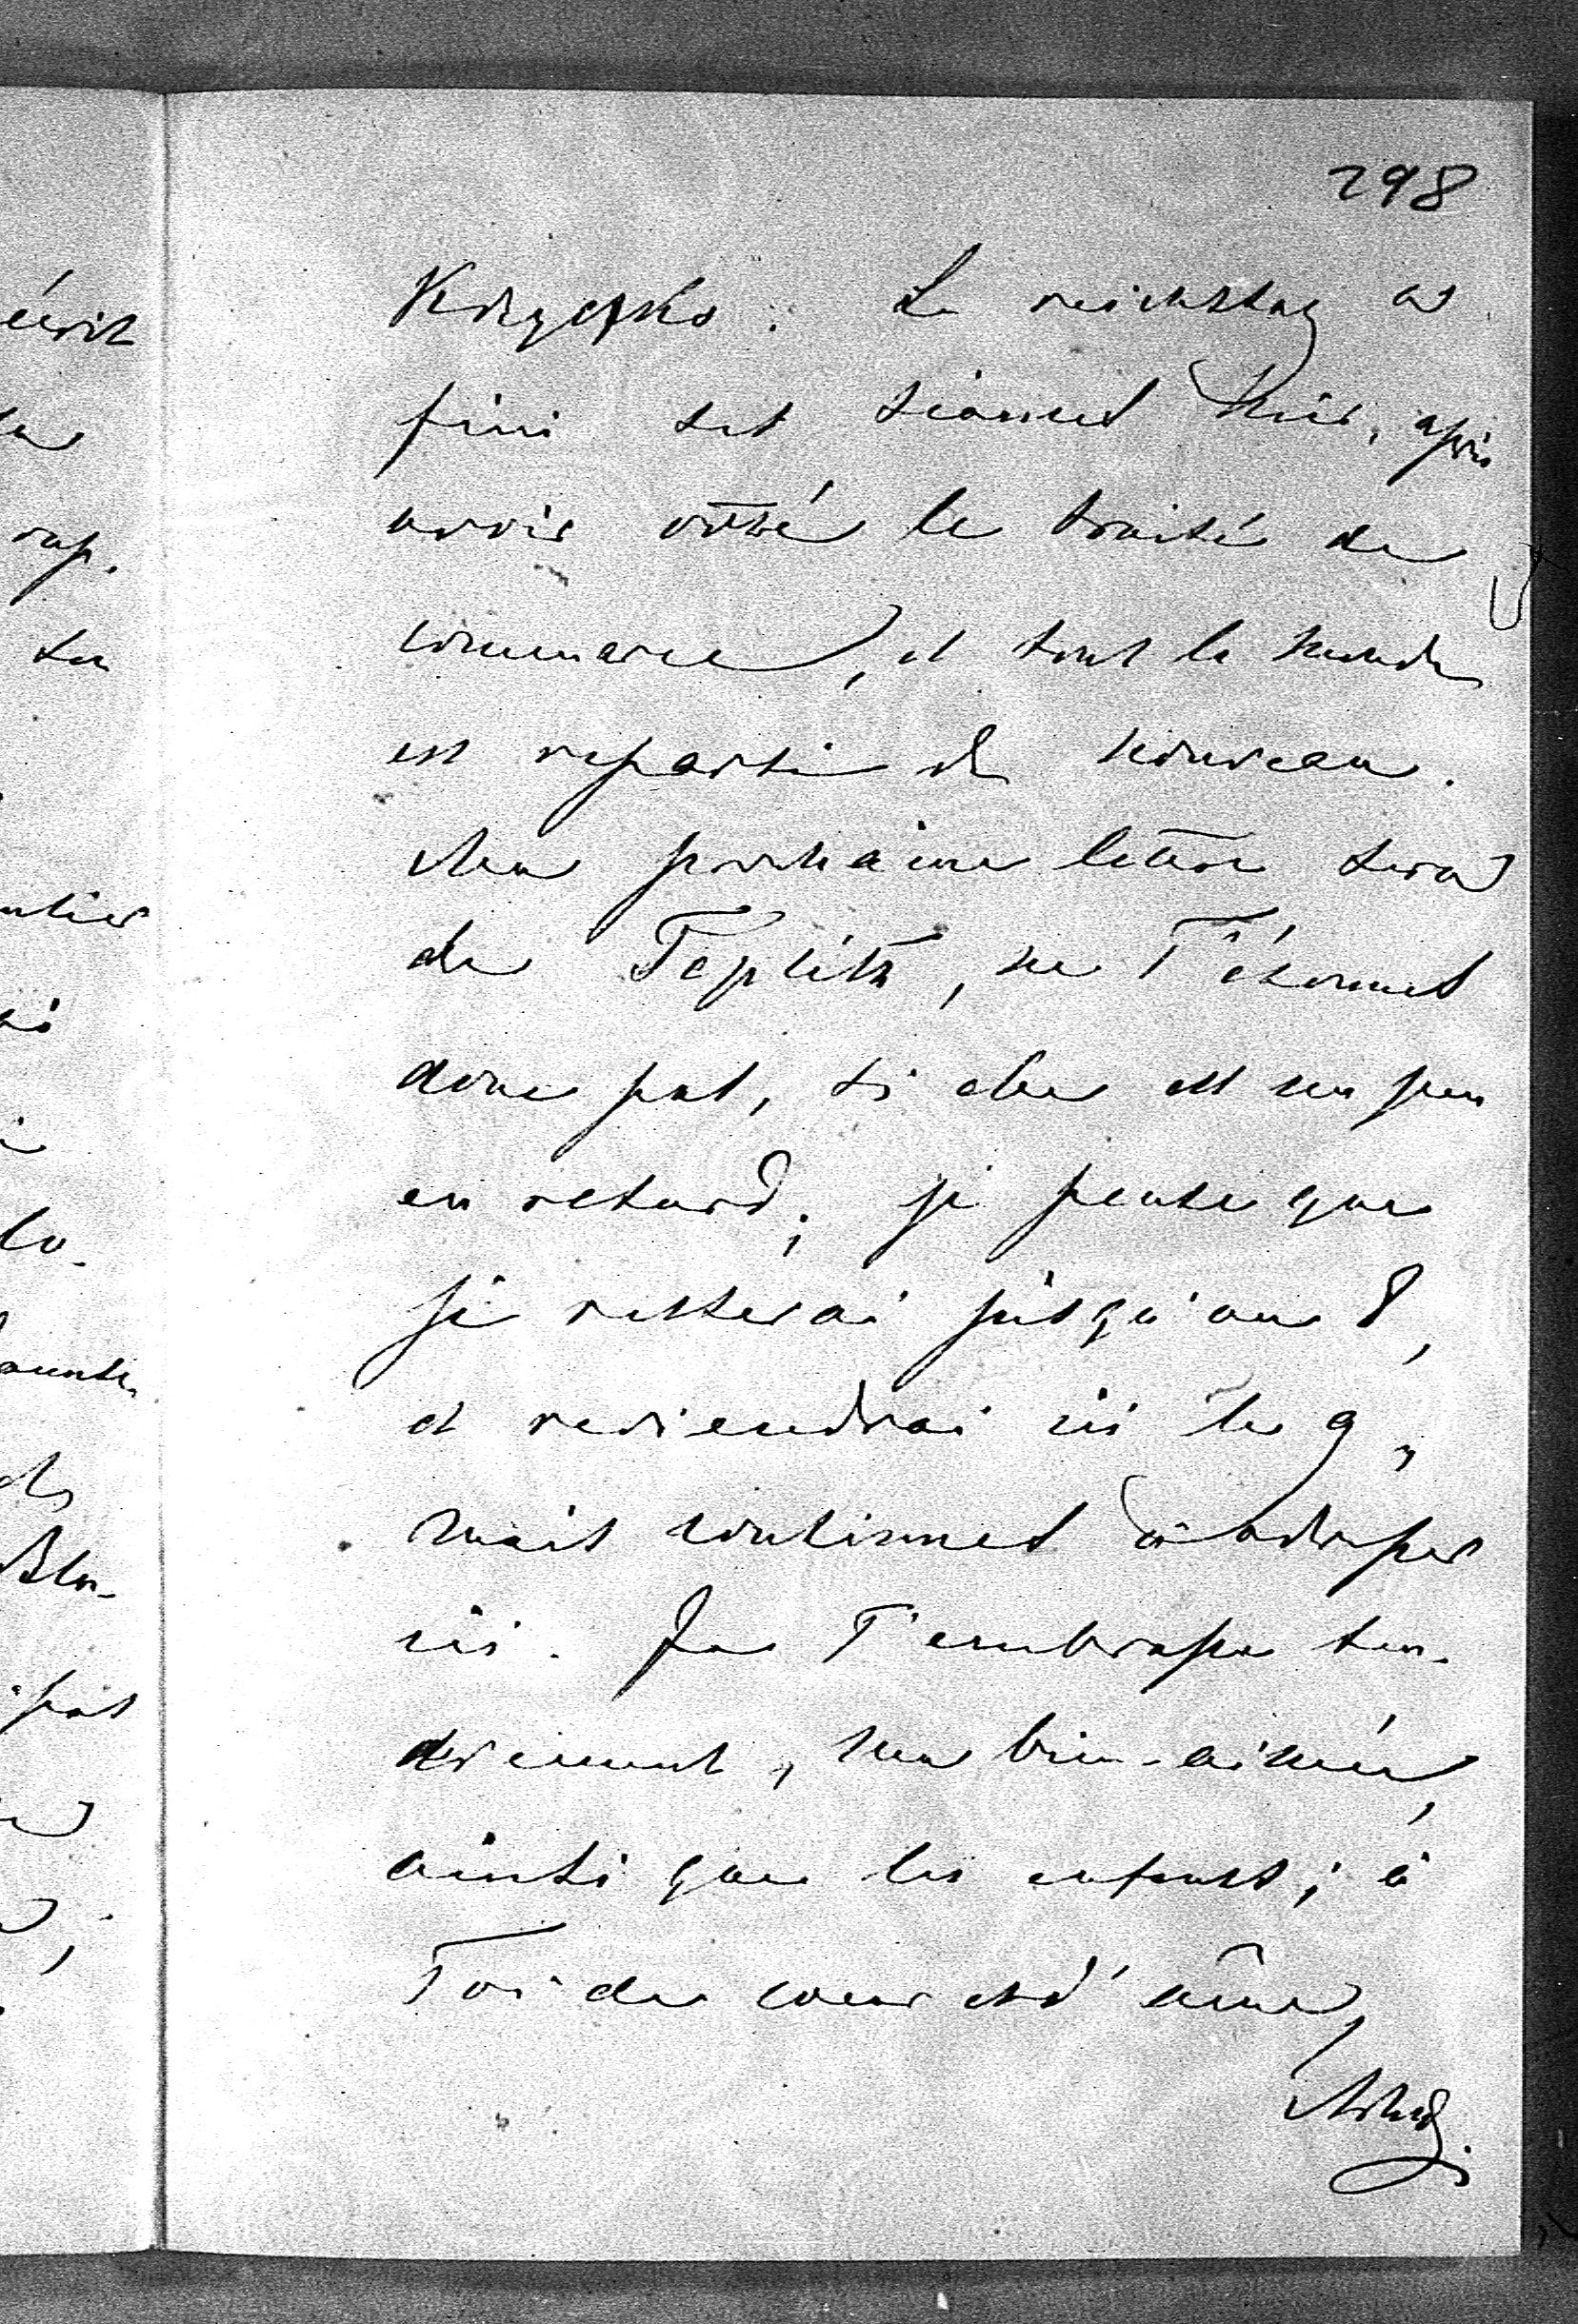 298
Le reichstag a
fini ses séances hier, après
avoir voté le traité de
commerce, et tout le monde
est reparti de nouveau.
Ma prochaine lettre sera
de Teplitz, ne T'étonnes
donc pas, si elle est un peu
en retard; je pense que
je resterai jusqu'au 8,
et reviendrai ici le 9,
mais continues à adresser
ici. Je T'embrasse ten-
drement, ma bien-aimée,
ainsi que les enfants; à
Toi de coeur et d'âme,
écrit
rap.
pas